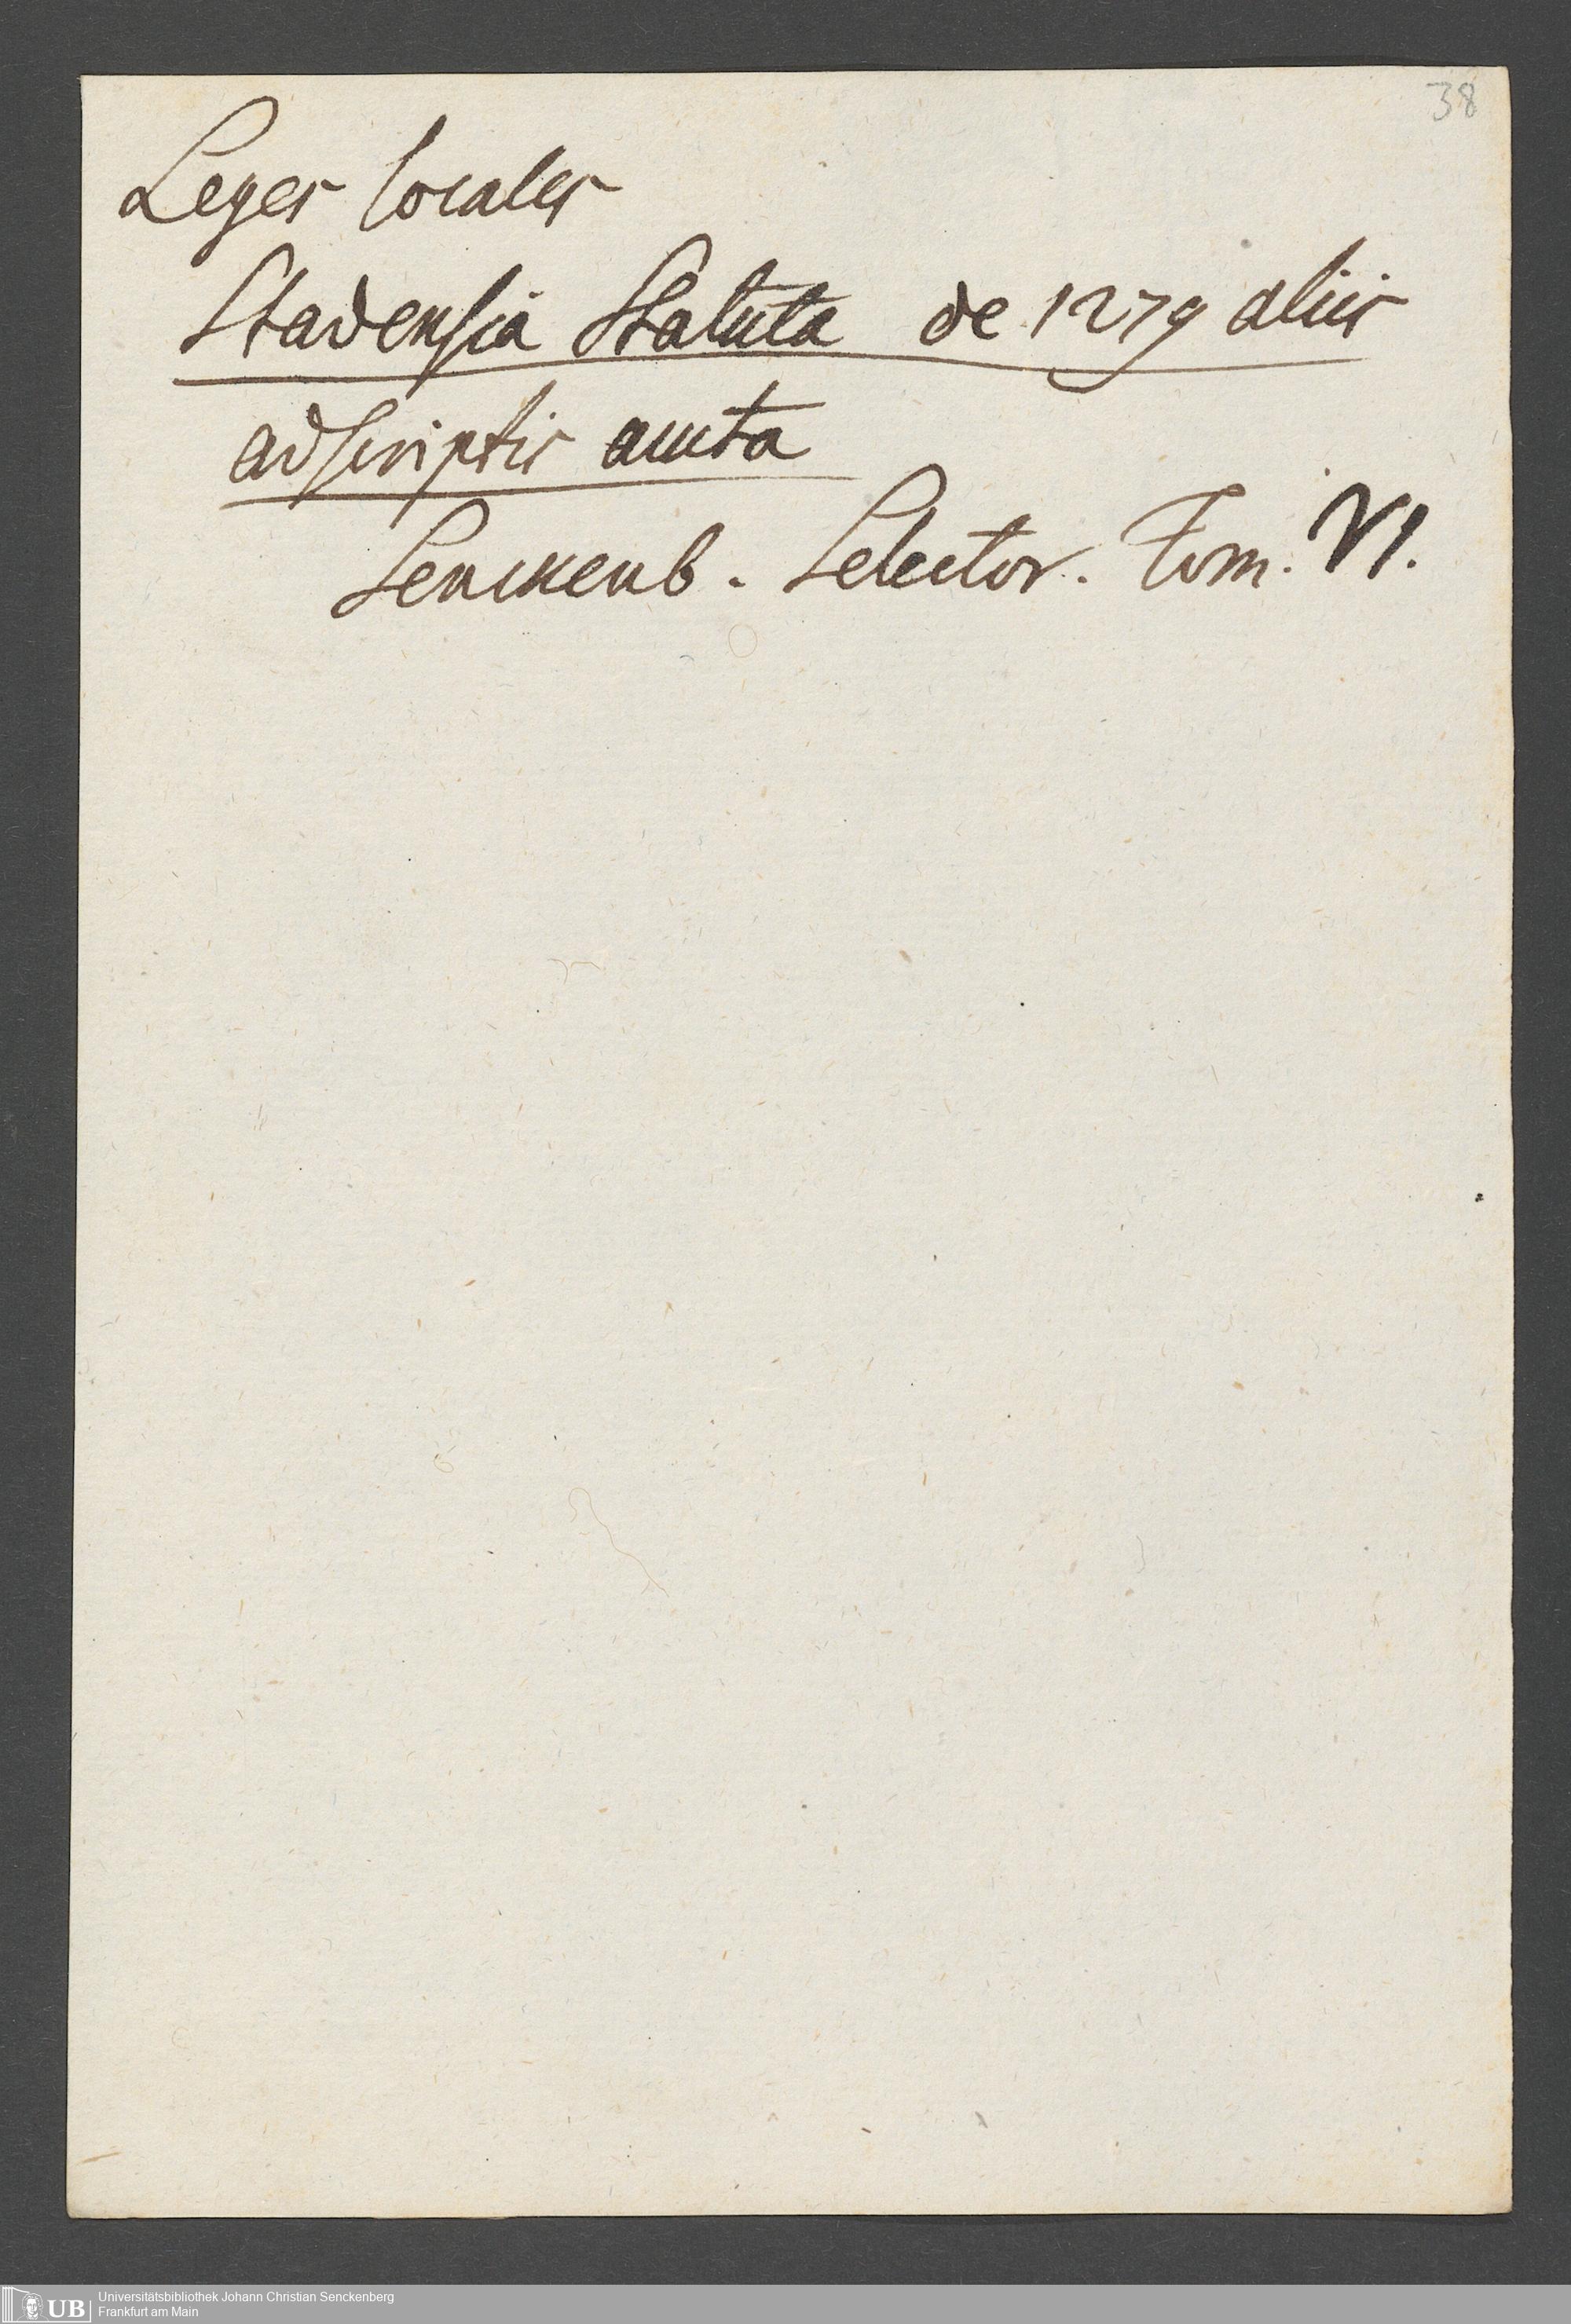 38
Leges locales
Stadensia Statuta de 1279 aliis
adscriptis aucta
Senckenb. Selector. Tom. VI.
UB Universitätsbibliothek Johann Christian Senckenberg
Frankfurt am Main